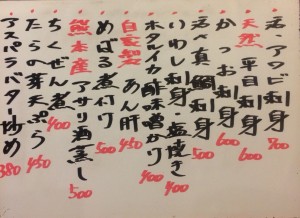 活・アワビ刺身 700
天然 平目刺身 600
かつお刺身 600
活〆真鯛刺身 500
いわし刺身・塩焼き 400
ホタルイカ酢味噌がけ 400
自家製 あん肝 450
めばる煮付け 500
熊本産 アサリ酒蒸し 500
ちくぜん煮 400
たらの芽天ぷら 450
アスパラバター炒め 380